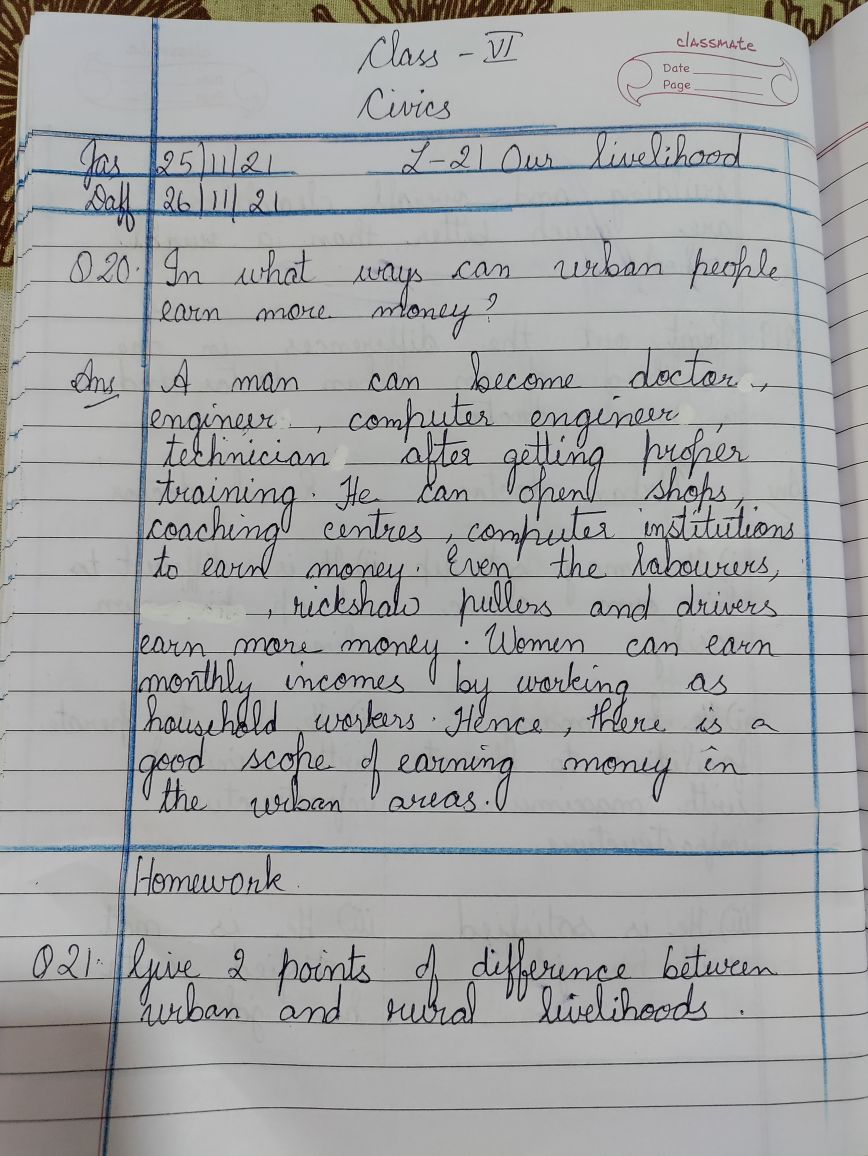 Class - VI
classmate
Date
Page
Civics
Jas 25/11/21 L-21 Our livelihood
Daff 26/11/21
Q20. In what ways can urban people
earn more money?
Ans A man can become doctor,
engineer, computer engineer,
technician after getting proper
training. He can open shops,
coaching centres, computer institutions
to earn money. Even the labourers,
, rickshaw pullers and drivers
earn more money. Women can earn
monthly incomes by working as
household workers. Hence, there is a
good scope of earning money in
the urban areas.
Homework.
Q21. Give 2 points of difference between
urban and rural livelihoods.